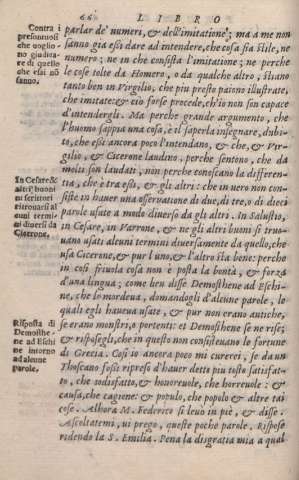 66 LIBRO
Contra i
presontuosi
che voglio-
no giudica-
re di quello
che essi nō
sanno.
parlar de' numeri, & dell'imitatione; ma a me non
sanno gia essi dare ad intendere, che cosa sia stile, ne
numero; ne in che consista l'imitatione; ne perche
le cose tolte da Homero, o da qualche altro, stiano
tanto ben in Virgilio, che piu presto paiono illustrate,
che imitate: & ciò forse procede, ch'io non son capace
d'intendergli. Ma perche grande argumento, che
l'huomo sappia una cosa, è il saperla insegnare, dubi-
to, che essi ancora poco l'intendano, & che, & Vir-
gilio, & Cicerone laudino. perche sentono, che da
molti son laudati, non perche conoscano la differen-
tia, che è tra essi, & gli altri: che in uero non con-
In Cesare &
altri buoni
ni scrittori
ritrouarsi al
cuni termi
ni diuersi da
Cicerone.
siste in hauer una osseruatione di due, di tre, o di dieci
parole usate a modo diuerso da gli altri. In Salustio,
in Cesare, in Varrone, & ne gli altri buoni si truo-
uano usati alcuni termini diuersamente da quello, che
usa Cicerone, & pur l'uno, & l'altro sta bene: perche
in così friuola cosa non è posta la bontà, & forza
d'una lingua; come ben disse Demosthene ad Eschi-
ne, che lo mordeua, domandogli d'alcune parole, le
quali egli haueua usate, & pur non erano antiche,
Risposta di
Demosthe-
ne ad Eschi
ne intorno
ad alcune
parole.
se erano monstri, o portenti: et Demosthene se ne rise;
& risposegli, che in questo non consisteuano le fortune
di Grecia. Così io ancora poco mi curerei, se da un
Thoscano fossi ripreso d'hauer detto piu tosto satisfat-
to, che sodisfatto, & honoreuole, che horreuole: &
causa, che cagione: & populo, che popolo & altre tai
cose. Alhora M. Federico si leuò in piè, & disse.
Ascoltatemi, ui prego, queste poche parole. Rispose
ridendo la S. Emilia. Pena la disgratia mia a qual